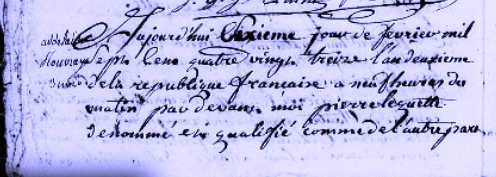 Aujourd'hui Sixieme jour de fevrier mil
Sept Cens quatre vingt treize l'an deuxieme
de la republique francaise a neuf heures du
matin par devant moi pierre
denommé et qualifié comme de l'autre part